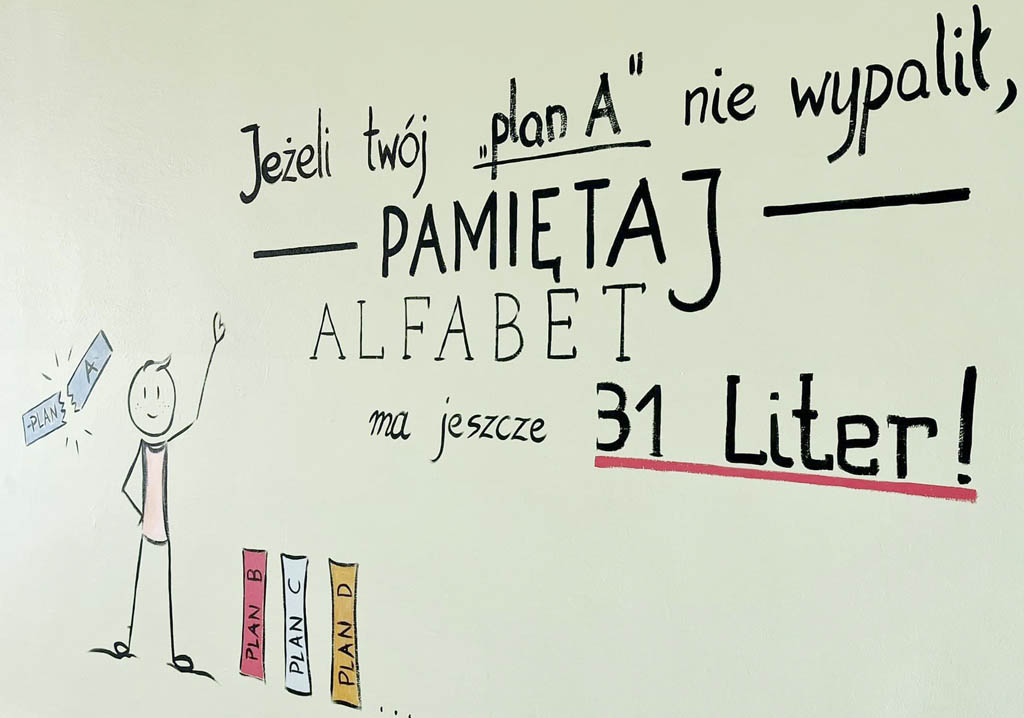 Jeżeli twój „plan A" nie wypalił,
— PAMIĘTAJ —
ALFABET
ma jeszcze 31 Liter!
PLAN A
PLAN B
PLAN C
PLAN D
...